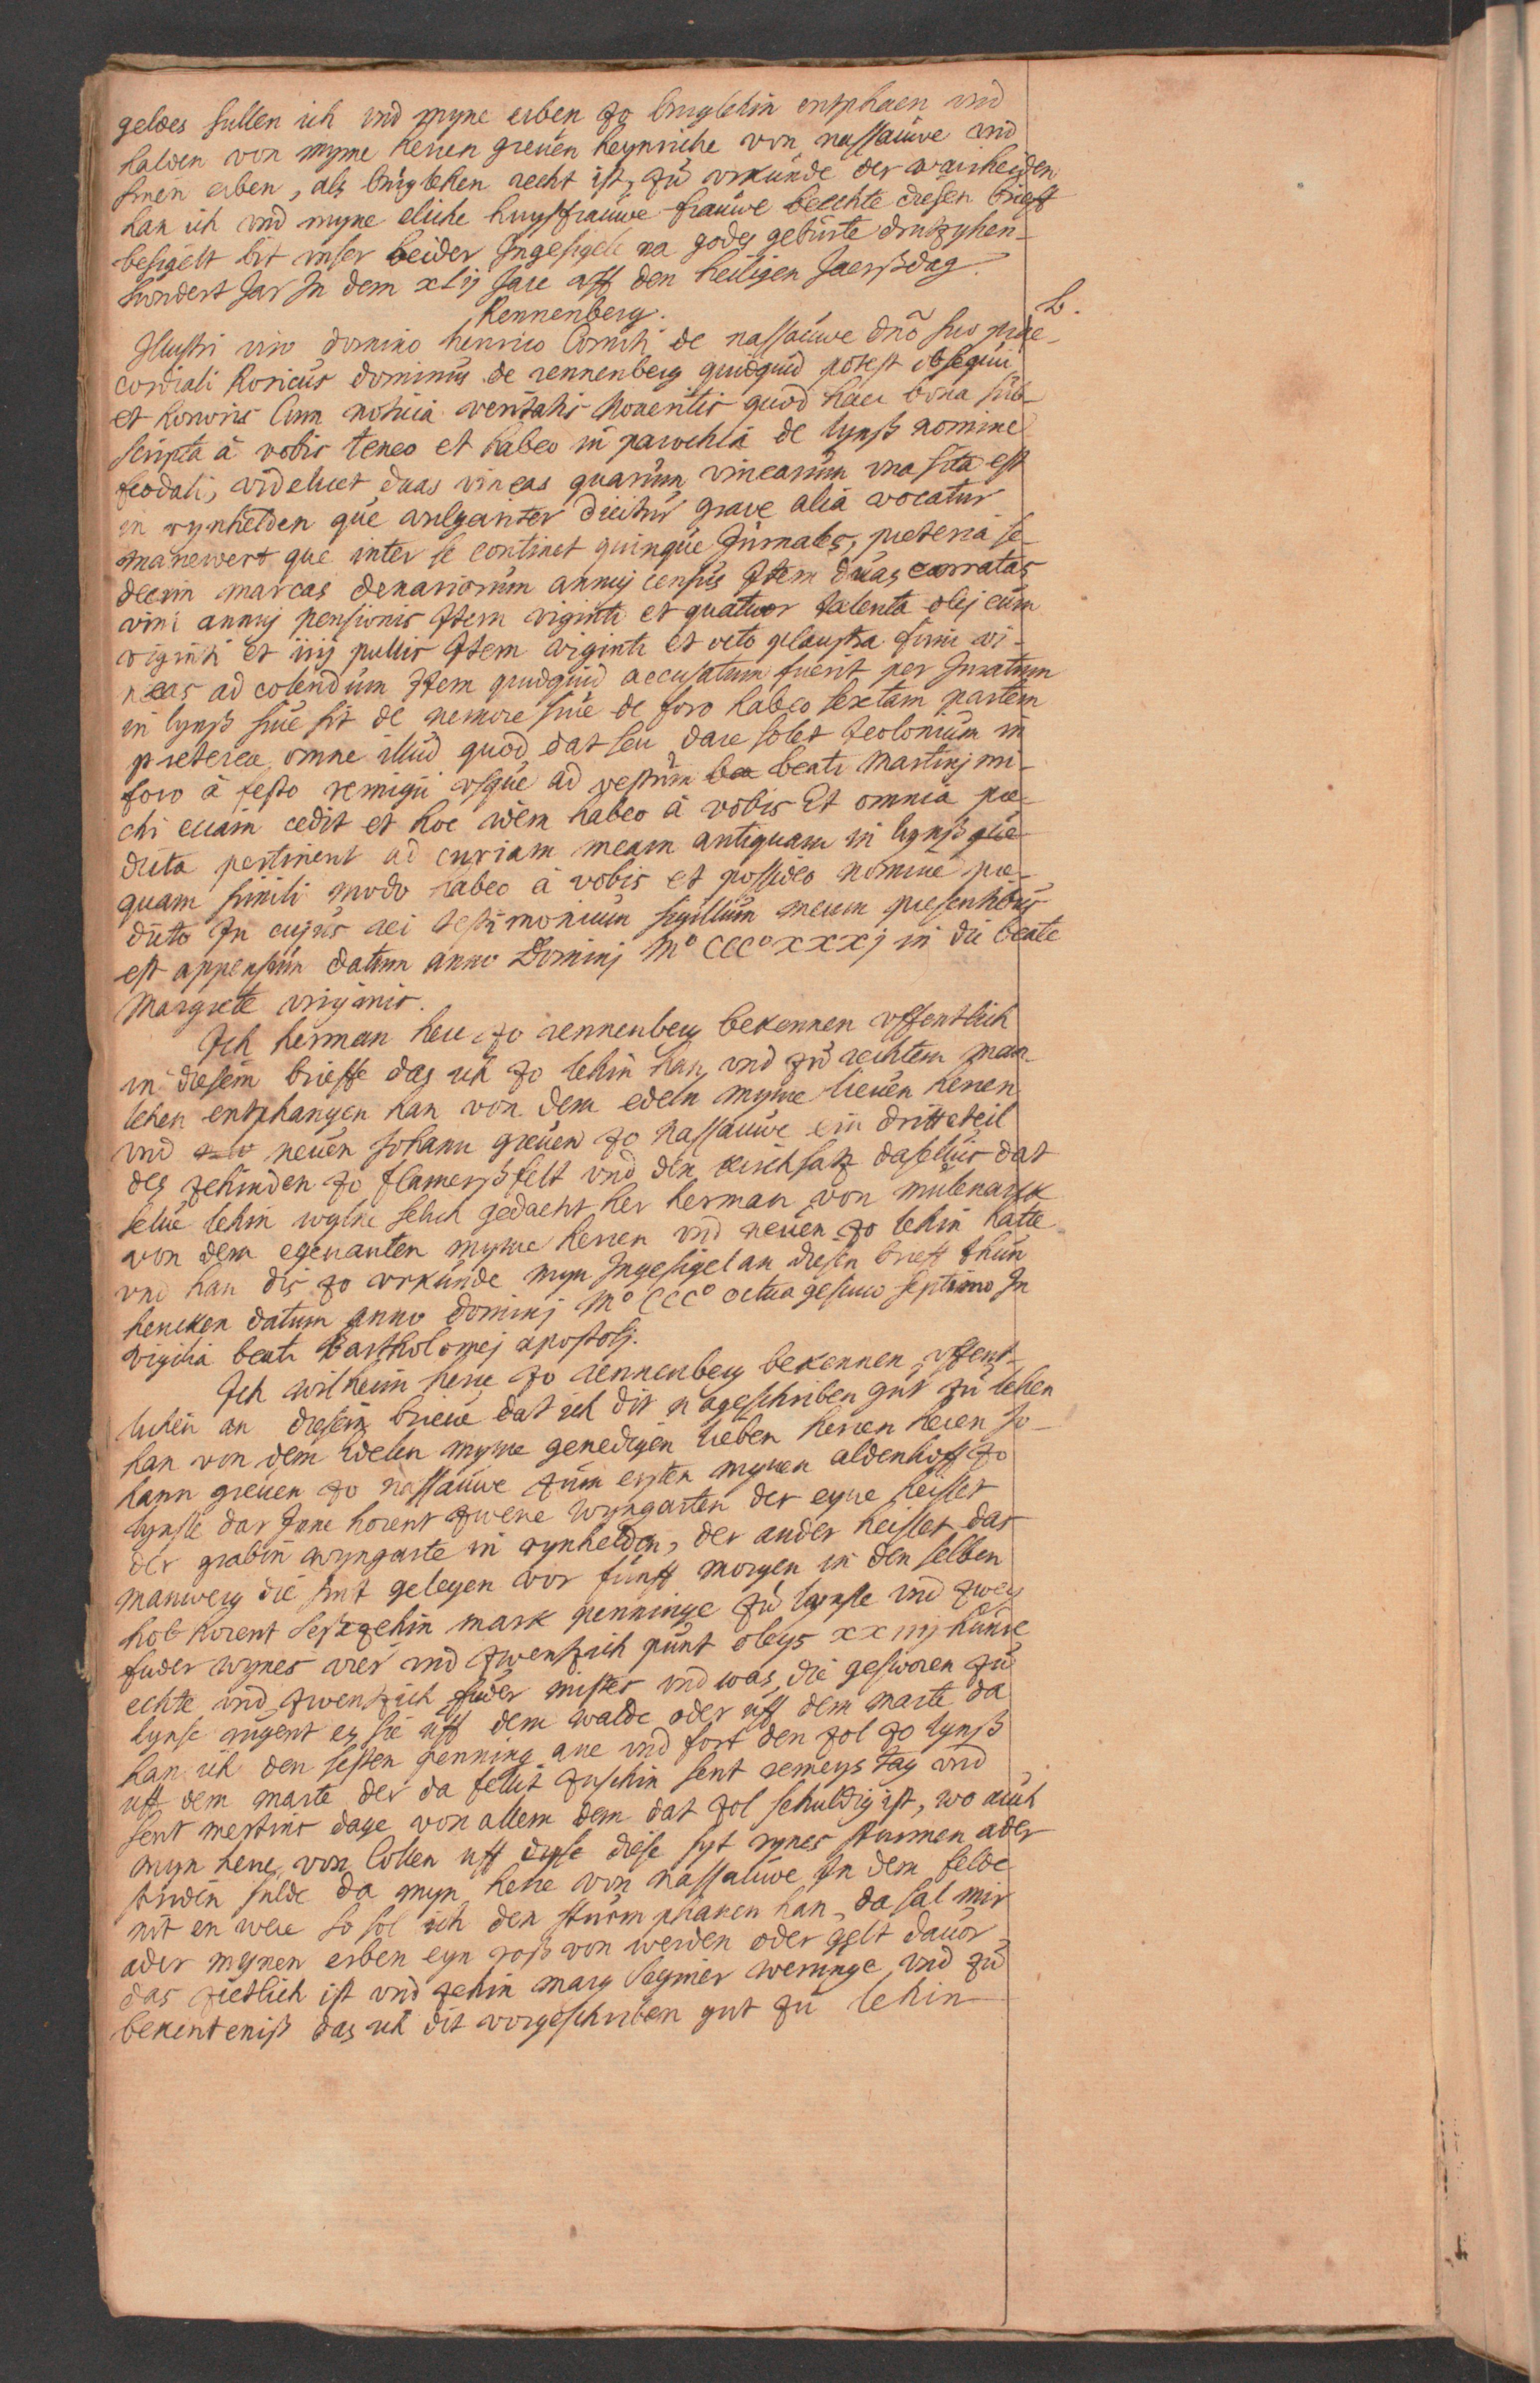 geldes sullen ich vnd myne erben zo burglehin entphaen vnd
halden von myme herren greuen heynriche von nassauwe vnd
sinen erben, als burglehen recht ist, zu vrkunde der wairheiden
han ich vnd myne eliche huysfrauwe frauwe beechte diesen brieff
besigelt bit vnser beider Ingesigele na gods geburte drutzyhen-
hundert Jar In dem xlij Jare vff den heiligen Jaerßdag.
Rennenberg.
L.
Illustri viro domino henrico Comiti de nassauwe dno suo prae-
cordiali Roricus dominus de rennenberg quidquid potest obsequii
et honoris Cum noticia veritatis Noueritis quod haec bona sub-
scripta à vobis teneo et habeo in parochia de lynß nomine
feodali, videlicet duas vineas quarum vinearum vna sita est
in rynhelden que vulgariter dicitur grave alia vocatur
manewert que inter se continet quinque Jurnales, preterea se-
decim marcas denariorum annuj census Item duas carratas
vini annuj pensionis Item viginti et quatuor talenta olej cum
viginti et iiij pullis Item viginti et octo plaustra fimi vi-
neas ad colendum Item quidquid accusatum fuerit per Juratum
in lynß siue sit de nemore siue de foro habeo sextam partem
preterea omne illud quod dat seu dare solet teolonium in
foro à festo remigii vsque ad festum bea beati Martinj mi-
chi eciam cedit et hoc idem habeo à vobis Et omnia pre-
dicta pertinent ad curiam meam antiquam in lynß que
quam simili modo habeo à vobis et possideo nomine pre-
dicto In cujus rei testimonium sigillum meum presentibus
est appensum datum anno Dominj M° CCC° xxxj in die beate
Margrete virginis.
Ich herman here zo rennenberg bekennen vffentlich
in diesem brieffe das ich zo lehin han, vnd zu rechtem man
lehen entphangen han von dem edeln myme lieuen herren
vnd neuen Johann greuen zo Nassauwe ein dritteteil
des zehinden zo flamerßfelt vnd den kirchsatz daselüis dat
selue lehin wylne selich gedacht her herman von mulenarkk
von dem egenanten myme herren vnd neuen zo lehin hatte
vnd han dis zo vrkunde myn Ingesigel an diesen brieff thun
hencken datum anno dominj M° CCC° octuagesimo septimo In
vigilia beati Bartholomej apostolj.
Ich wilhelm herre zo rennenberg bekennen vffent-
lichen an diesem brieue dat ich dit nageschriben gut zu lehen
han von dem Edelen myme genedigen lieben herren herren Jo-
hann greuen zo Nassauwe zum ersten mynen aldenhoff zo
lynsse dar Inne horent zwene wyngarten der eyne heisset
der grabin wyngarte in rynhelden, der ander heisset dar
manwerg die sint gelegen vor funff morgen in den selben
hob horent seßzehin mark penninge zu lynsse vnd zwey
fuder wynes vier vnd zwentzich punt oleys xxiiij hunre
echte vnd zwentzich fuder mistes vnd was die gesworen zu
lynse rugent es sie uff dem walde oder uff dem marte da
han ich den sesten penning ane vnd fort den zol zo lynß
uff dem marte der da fellit zuschin sent remeys tag vnd
sent mertins dage von allem dem dat zol schuldig ist, wo auch
myn herre von Collen uff diese syt rynes sturmen ader
striden sulde da myn herre von Nassauwe In dem felde
nit en were so sol ich den sturm phanen han, da sal mir
ader mynen erben eyn roß von werden oder gelt dauor
das zietlich ist vnd zehin marg weringe vnd zu
bekenteniß das ich dit vorgeschriben gut zu lehin